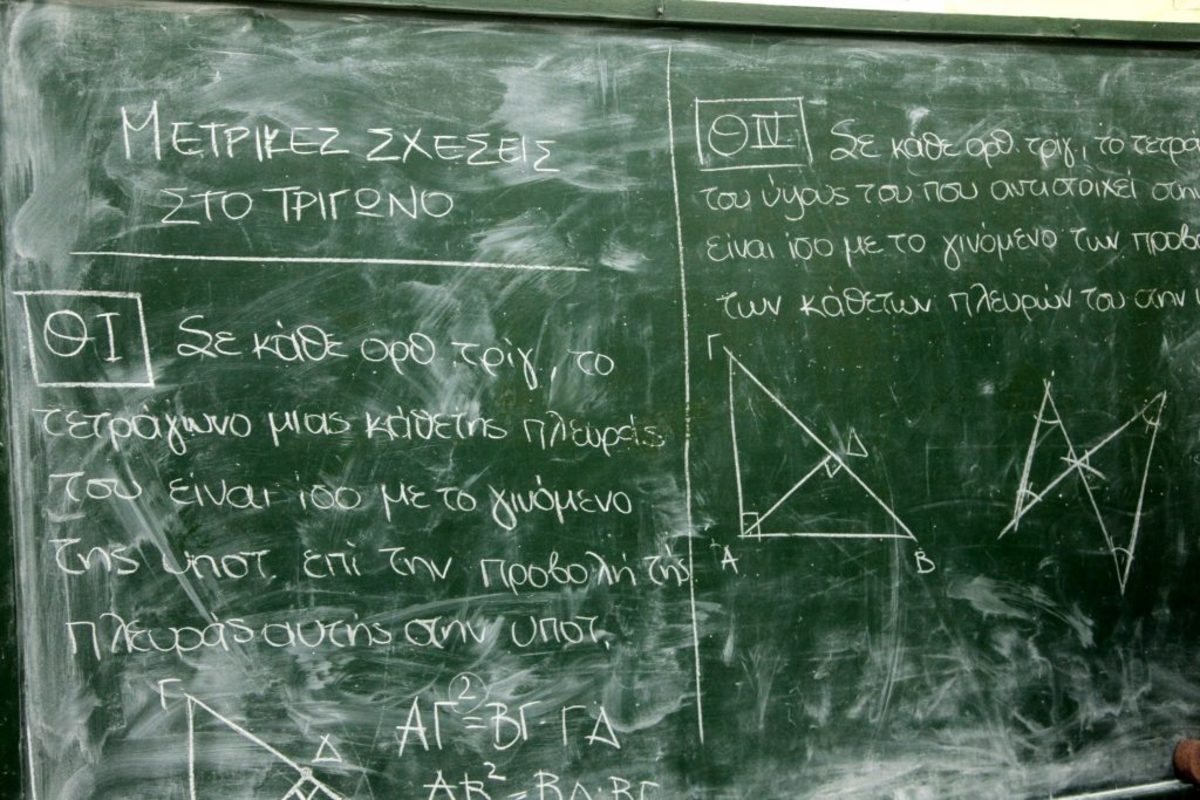 ΜΕΤΡΙΚΕΣ ΣΧΕΣΕΙΣ
ΣΤΟ ΤΡΙΓΩΝΟ
Θ Ι Σε κάθε ορθ τρίγ, το
τετράγωνο μιας κάθετης πλευράς
του είναι ίσο με το γινόμενο
της υποτ. επί την προβολή της
πλευράς αυτής στην υποτ.
Γ
Δ
ΑΓ²=ΒΓ·ΓΔ
ΑΒ²=ΒΔ·ΒΓ
Θ IV Σε κάθε ορθ. τρίγ, το τετρα
του ύψους του που αντιστοιχεί στην
είναι ίσο με το γινόμενο των προβ
των κάθετων πλευρών του στην
Γ
Δ
Α Β